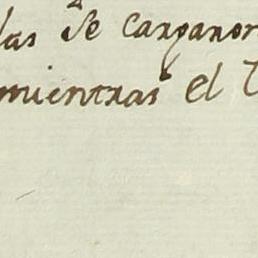 las se carganon
mientras el